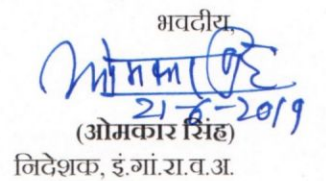 भवदीय,
21-6-2019
(ओमकार सिंह)
निदेशक, इं.गां.रा.व.अ.